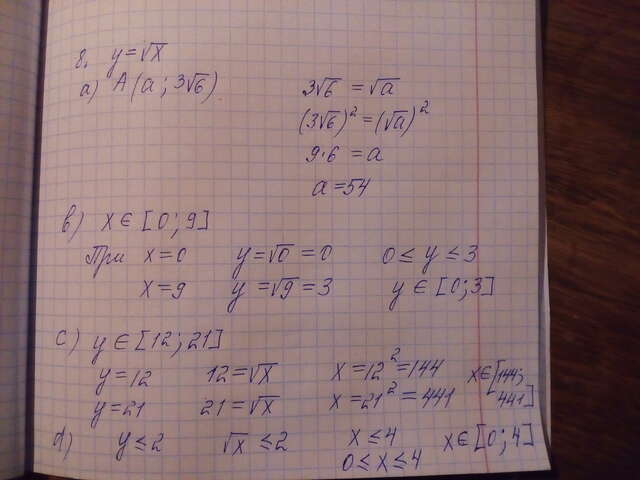 8. y = √x
а) A(a ; 3√6) 3√6 = √a
(3√6)² = (√a)²
9·6 = a
a = 54
в) x ∈ [0 ; 9]
При x = 0 y = √0 = 0 0 ≤ y ≤ 3
x = 9 y = √9 = 3 y ∈ [0 ; 3]
c) y ∈ [12 ; 21]
y = 12 12 = √x x = 12² = 144 x ∈ [144;
y = 21 21 = √x x = 21² = 441 441]
d) y ≤ 2 √x ≤ 2 x ≤ 4 x ∈ [0 ; 4]
0 ≤ x ≤ 4